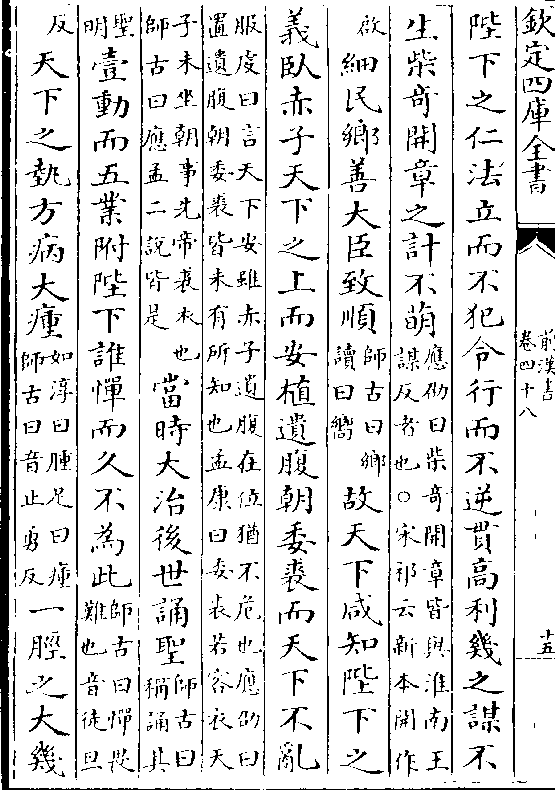 欽定四庫全書
前漢書
卷四十八
十五
陛下之仁法立而不犯令行而不逆貫高利幾之謀不
生柴奇開章之計不萌應劭曰柴奇開章皆與淮南王
謀反者也○宋祁云新本開作
啟細民鄉善大臣致順師古曰鄉
讀曰嚮故天下咸知陛下之
義臥赤子天下之上而安植遺腹朝委裘而天下不亂
服虔曰言天下安雖赤子遺腹在位猶不危也應劭曰
置遺腹朝委裘皆未有所知也孟康曰委裘若容衣天
子未坐朝事先帝裘衣也
師古曰應孟二說皆是當時大治後世誦聖師古曰
稱誦其
聖
明壹動而五業附陛下誰憚而久不為此師古曰憚畏
難也音徒旦
反天下之埶方病大瘇如淳曰腫足曰瘇
師古曰音止勇反一脛之大幾